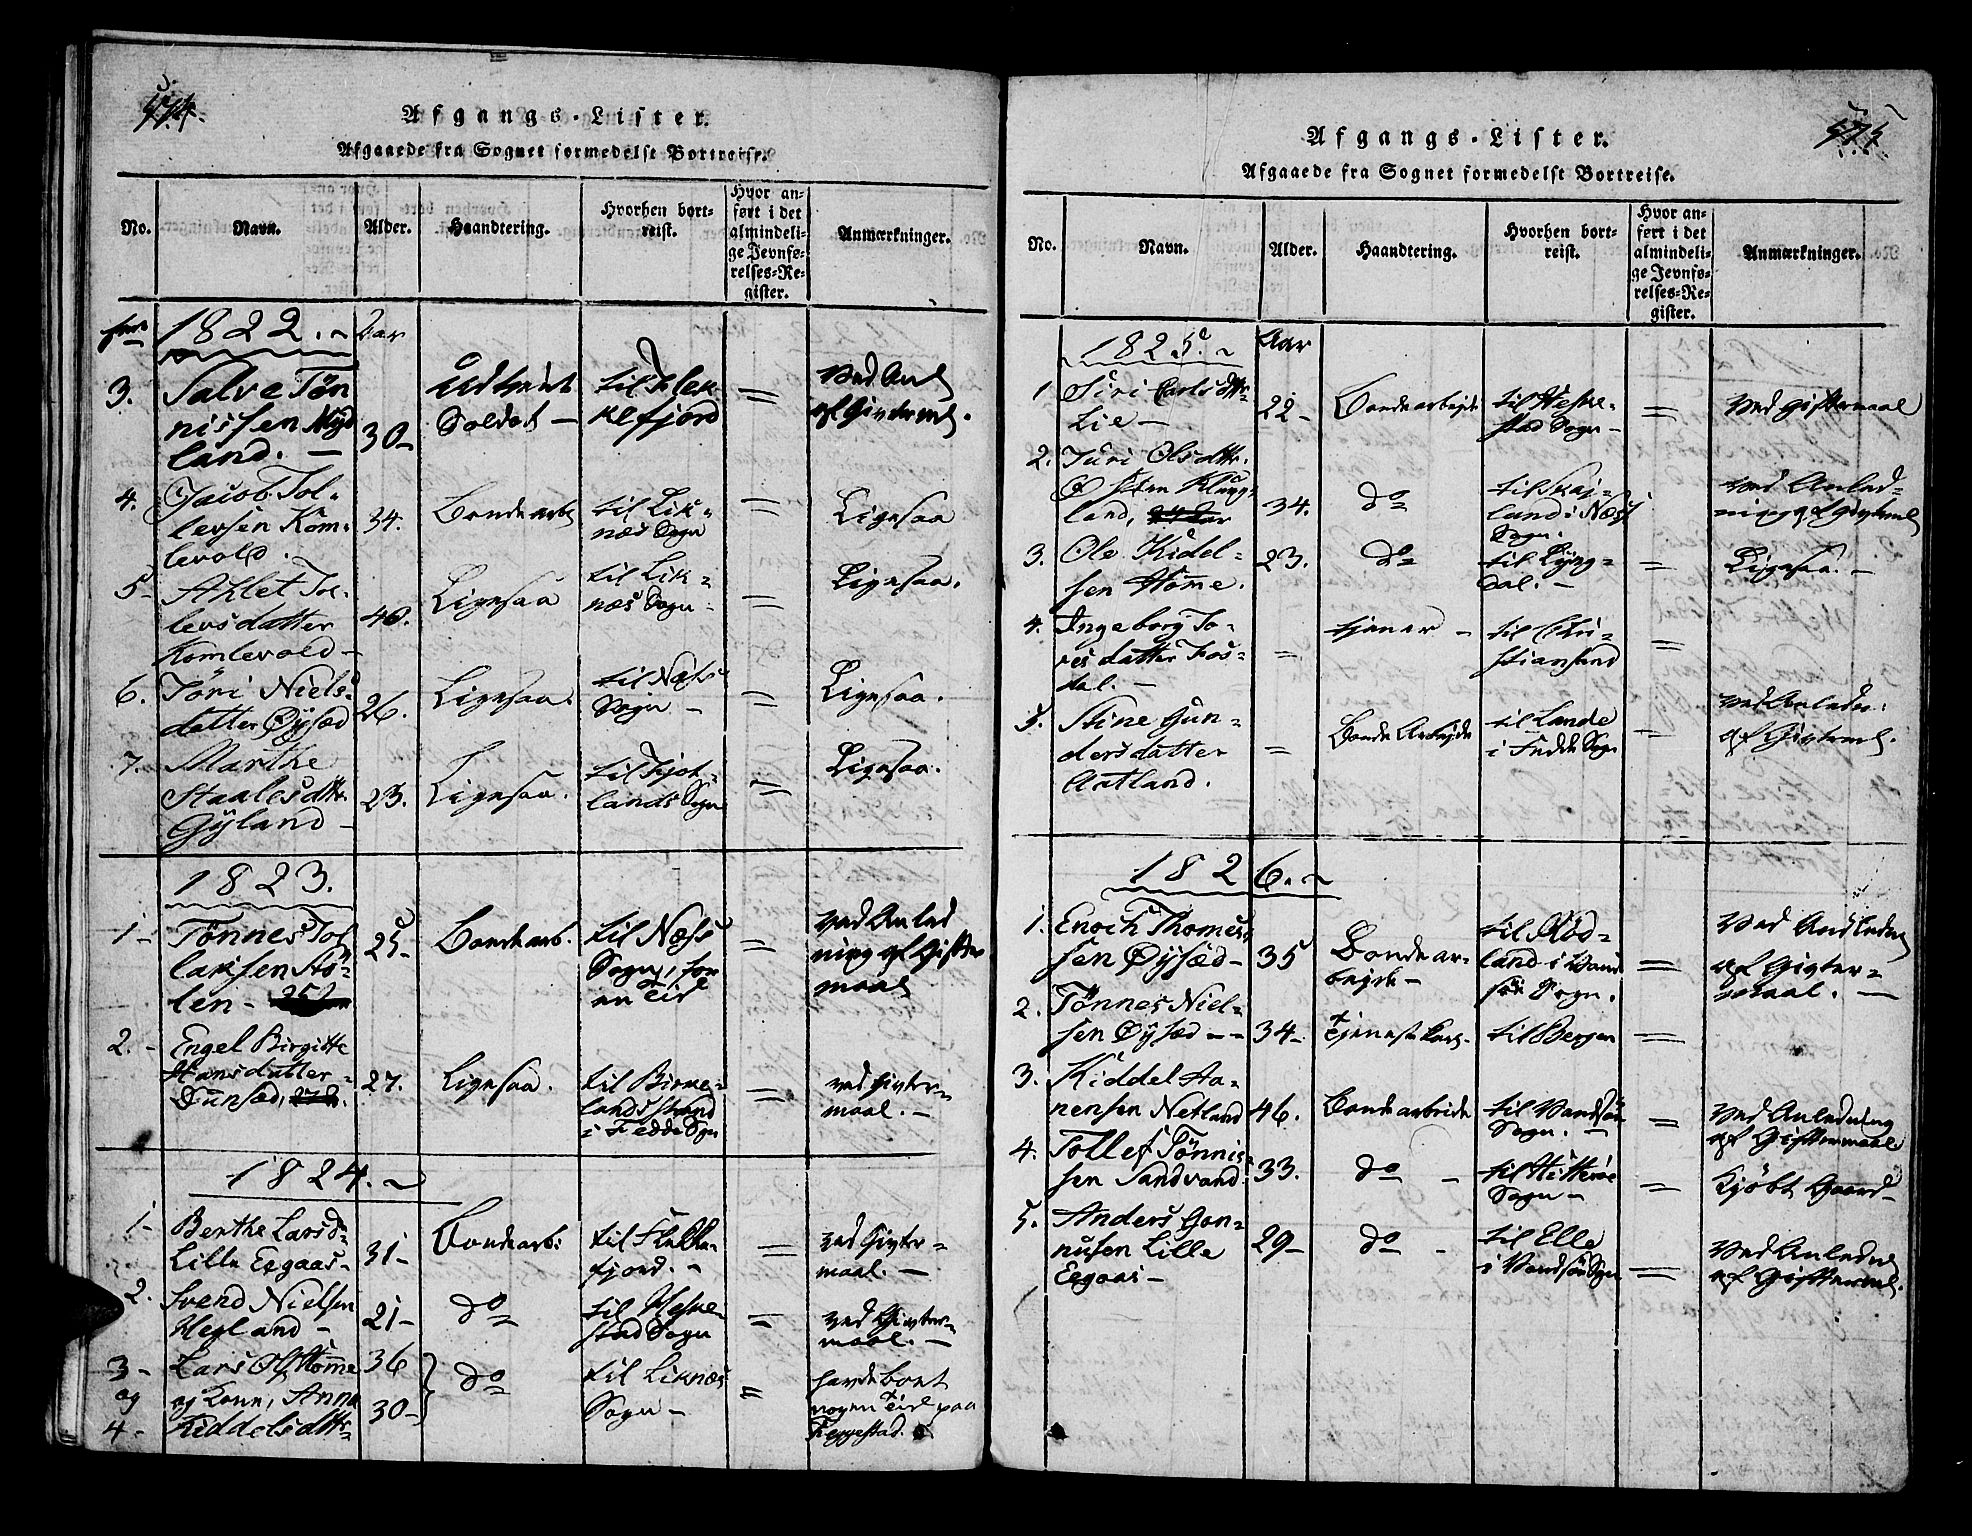 574.
Afgangs-Lister.
Afgaaede fra Sognet formedelst Bortreise.
No. Navn. Alder. Haandtering. Hvorhen bortreist. Hvor anført i det almindelige Jevnførelses-Register. Anmærkninger.
1822. Aar
3. Salve Tön
nissen Myd
land. — 30 — Udtient Soldat — til Flek
kefjord = ved Anl
af Givterml.
4. Jacob Tol=
levsen Kom=
levold. — 34. Bondearb til Lik=
næs Sogn = Ligesaa
5 — Ahlet Tol=
levsdatter
Komlevold — 40. Ligesaa til Lik=
næs Sogn — = Ligesaa.
6. Jöri Niels=
datter Öysæd 26. Ligesaa. til Næss
Sogn — = Ligesaa.
7. Marthe
Staalesdttr
Gyland — 23. Ligesaa. til Fjot=
lands Sogn = Ligesaa.
1823.
1 — Tönnes Tol
laksen Aö=
len — 25 — Bondearb. til Næss
Sogn, for
en Tid = ved Anled
ning af Gifter
maal
2. — Engel Birgitte
Hansdatter
Dunsæd, 27. Ligesaa. til Birke=
lands strand
i Fedde Sgn = ved Givter=
maal. —
1824. ~
1 — Berthe Larsd=
Lille Eegaas — 31 — Bondearb: til Flekke=
fjord. — = ved Givter=
maal. —
2. Svend Nielsen
Hegland — 21 — do til Heske=
stad Sogn = ved Givter=
maal. —
3 — Lars Ols Home 36
og og Kone, Anna 30 — do til Liknæs
Sogn — = havde boet
nogen Tid paa
Feggestad.
4 — Kiddelsdttr —
575
Afgangs-Lister.
Afgaaede fra Sognet formedelst Bortreise.
No. Navn. Alder. Haandtering. Hvorhen bortreist. Hvor anført i det almindelige Jevnførelses-Register. Anmærkninger.
1825. ~ Aar
1 Siri Carlsdttr
Lie — 22 — Bondearbejde til Heske=
stad Sogn — = ved Giftermaal
2. Juri Olsdttr.
Klung=
land, 34. do
land i Næs
Sogn. = ved Anled=
ning af Givterml
3. Ole Kidel=
sen Home. 23. do til Lyng=
dal. — = Ligesaa. —
4. Ingeborg To=
resdatter Fos=
dal. — = tjener — til Chri=
stiansand =
5. Stine Gun=
dersdatter
Aatland. = Bonde Arbejde til Lande
i Fedde Sogn = ved Anledn:
af Givterml.
1826. ~
1. Enoch Thomes=
sen Öysæd — 35 Bondear=
bejde — til Röd=
land i Vand
söe Sogn. = ved Andledn
af Givter=
maal. —
2. Tönnes Niel=
sen Öysæd — — 34 — Tjenestekarl — til Bergen =
3. Kiddel Aa=
nensen Netland 46. Bondearbeide til Vandsöe
Sogn. — = ved Anledning
af Giftermaal
4. Tollef Tönnis=
sen Sandvand 33. do — til Hitteröe
Sogn — = Kjöbt Gaard —
5. Anders Gon=
nusen Lille
Eegaas — 29 — do — til Elle
i Vandsöe Sgn = ved Anledn
af Gifterml.